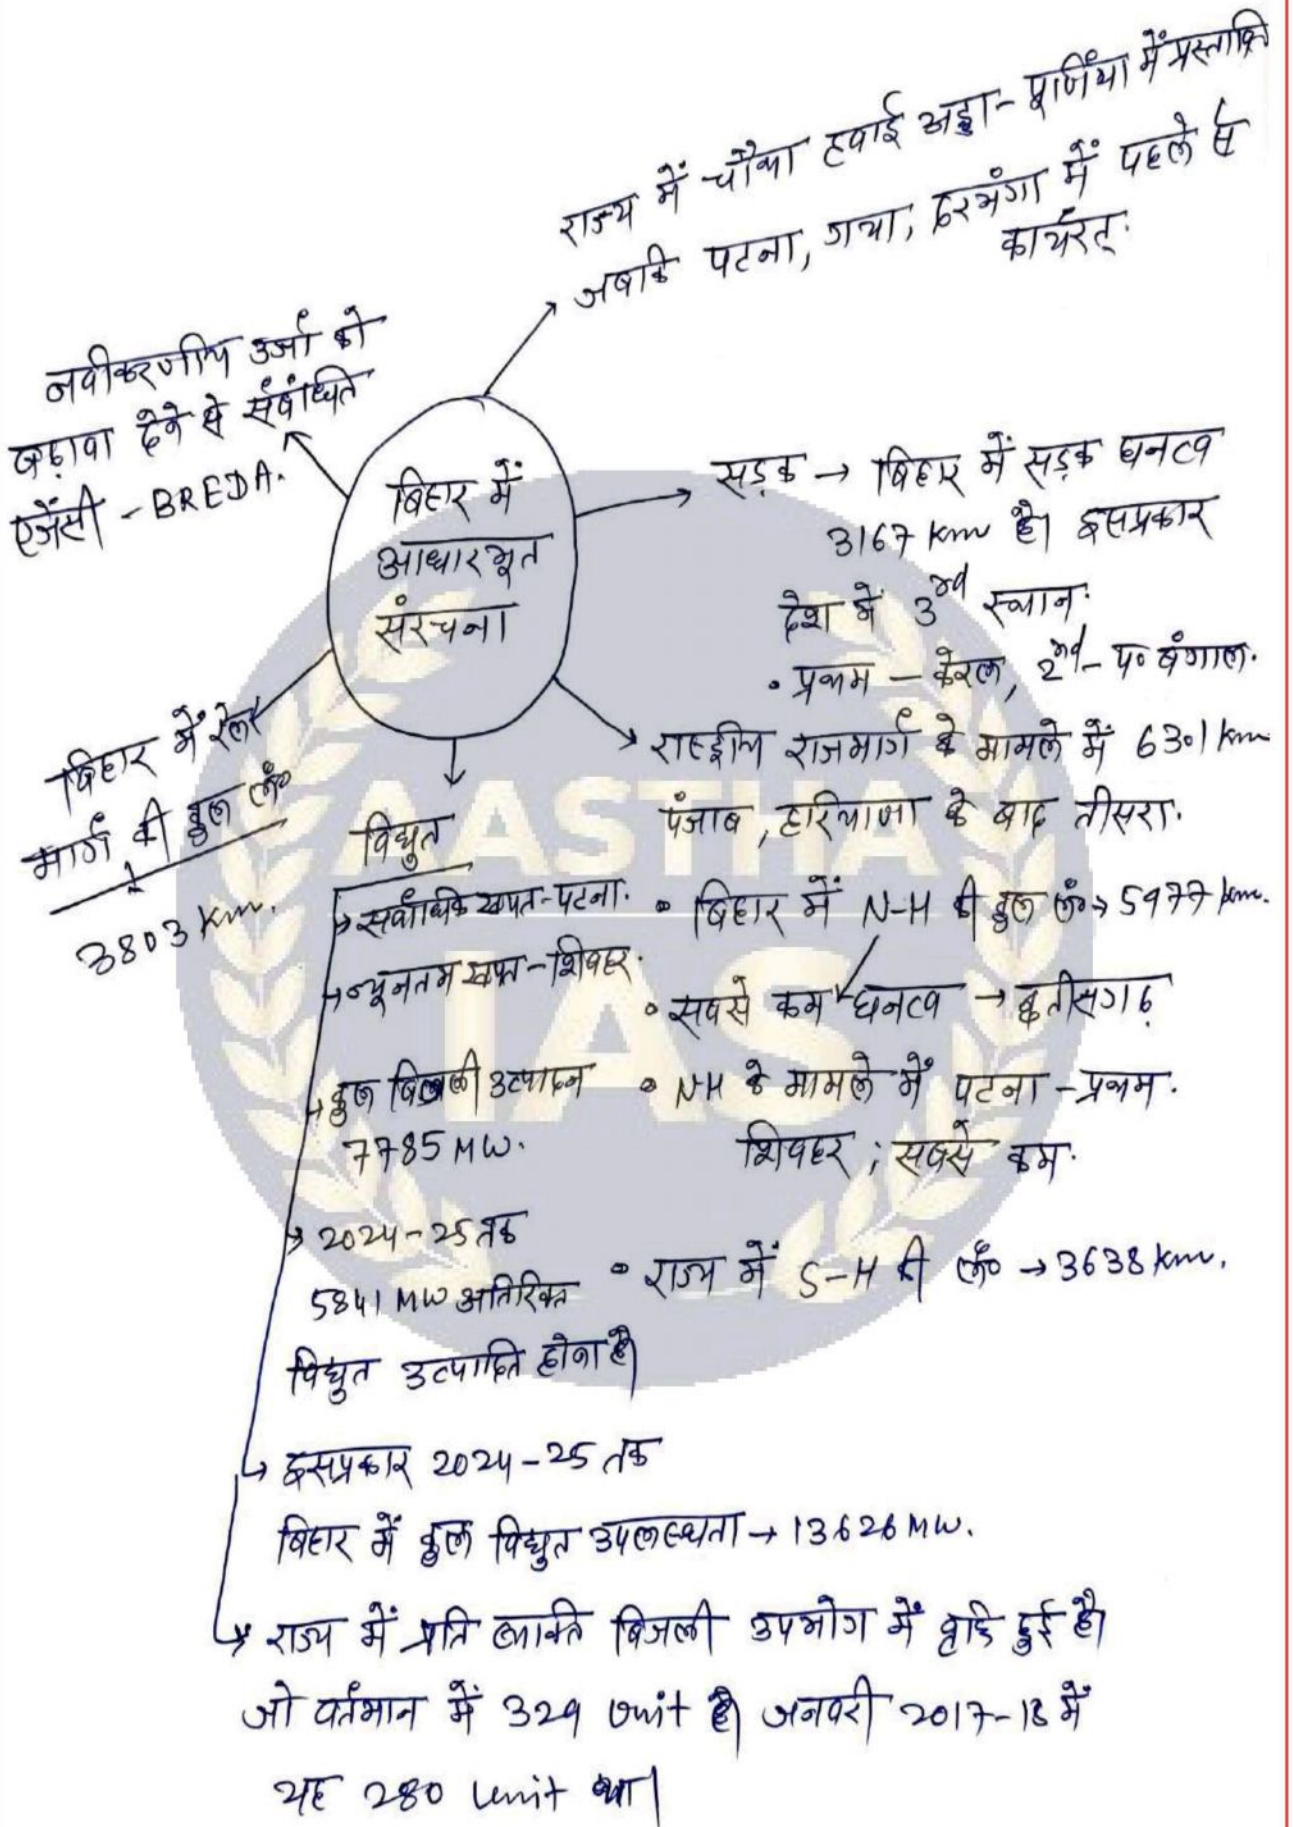 राज्य में चौथा हवाई अड्डा - पूर्णिया में प्रस्तावित
जबकि पटना, गया, दरभंगा में पहले से
कार्यरत.
नवीकरणीय उर्जा को
बढ़ावा देने से संबंधित
एजेंसी - BREDA.
बिहार में
आधारभूत
संरचना
सड़क → बिहार में सड़क घनत्व
3167 km है। इसप्रकार
देश में 3rd स्थान.
• प्रथम - केरल, 2nd - प० बंगाल.
राष्ट्रीय राजमार्ग के मामले में 6301 km
पंजाब, हरियाणा के बाद तीसरा.
• बिहार में N-H की कुल लं० → 5977 km.
• सबसे कम घनत्व → छतीसगढ़
• NH के मामले में पटना - प्रथम.
शिवहर ; सबसे कम.
• राज्य में S-H की लं० → 3638 km.
बिहार में रेल
मार्ग की कुल लं०
3803 km.
विद्युत
→ सर्वाधिक खपत - पटना.
→ न्यूनतम खपत - शिवहर.
→ कुल बिजली उत्पादन
7785 MW.
→ 2024-25 तक
5841 MW अतिरिक्त
विद्युत उत्पादित होना है।
→ इसप्रकार 2024-25 तक
बिहार में कुल विद्युत उपलब्धता → 13626 MW.
→ राज्य में प्रति व्यक्ति बिजली उपभोग में वृद्धि हुई है।
जो वर्तमान में 329 Unit है। जनवरी 2017-18 में
यह 280 Unit था।
AASTHA
IAS